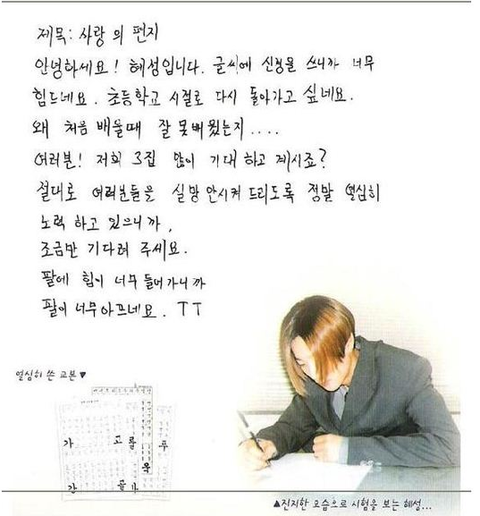 제목: 사랑의 편지
안녕하세요! 혜성입니다. 글씨에 신경을 쓰니까 너무
힘드네요. 초등학교 시절로 다시 돌아가고 싶네요.
왜 처음 배울때 잘 못배웠는지....
여러분! 저희 3집 많이 기대 하고 계시죠?
절대로 여러분들을 실망 안시켜 드리도록 정말 열심히
노력 하고 있으니까,
조금만 기다려 주세요.
팔에 힘이 너무 들어가니까
팔이 너무 아프네요. TT
열심히 쓴 교본▼
가 고 를
▲진지한 모습으로 시험을 보는 혜성...